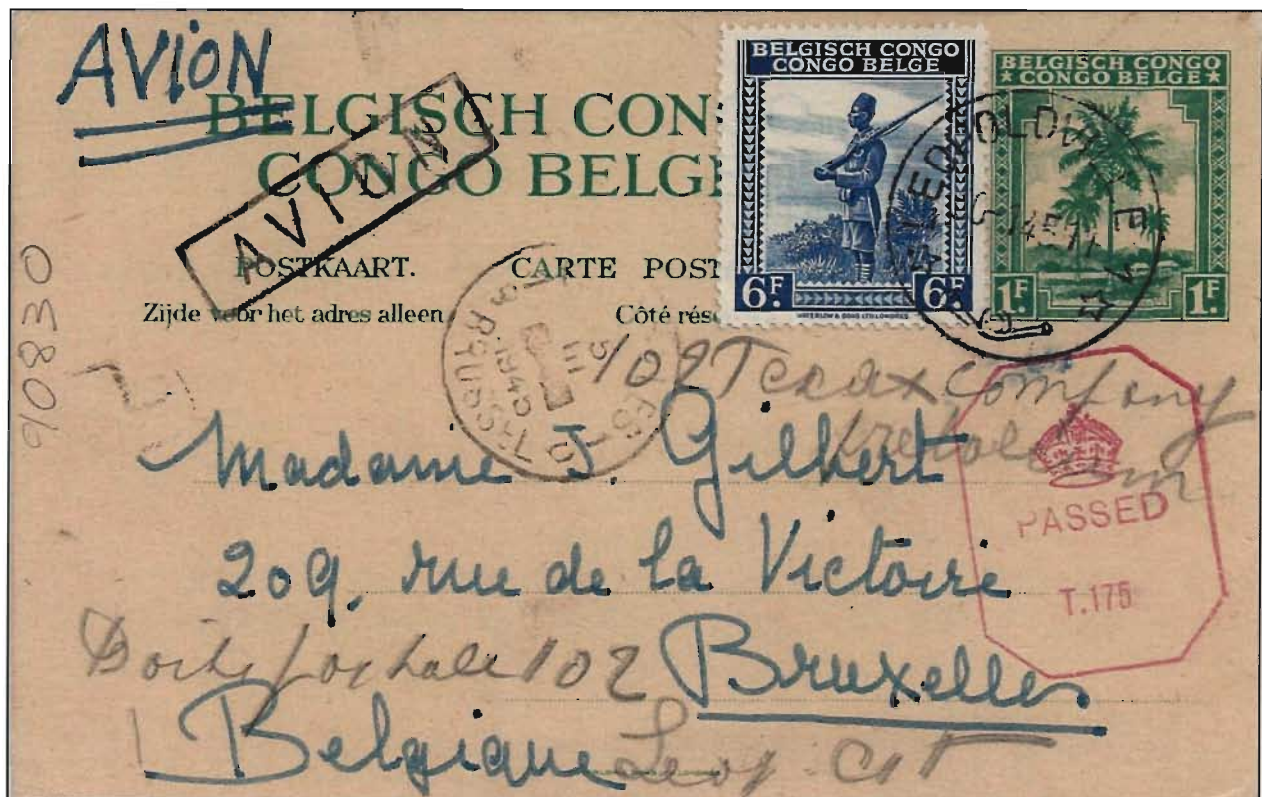 AVION
BELGISCH CON
CONGO BELGE
AVION
POSTKAART. CARTE POST
Zijde voor het adres alleen Côté rés
BELGISCH CONGO
CONGO BELGE
6F 6F
WATERLOW & SONS LTD LONDRES
BELGISCH CONGO
CONGO BELGE
1F 1F
LEOPOLDVILLE
BRUSSEL
1945
90830
Texax Company
Madame J. Gilbert
209, rue de la Victoire
Boite postale 102 Bruxelles
Belgique Leop
PASSED
T.175